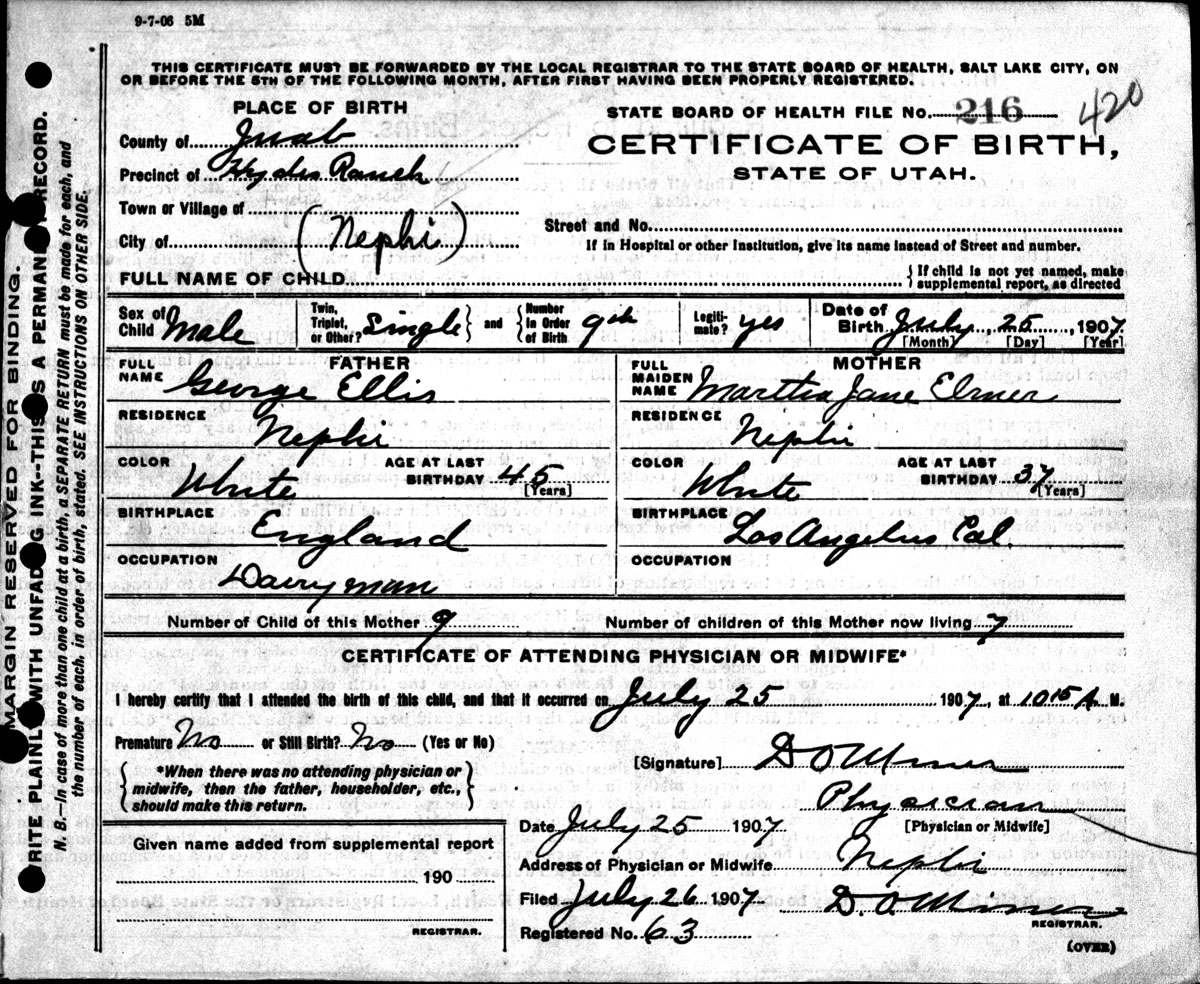 9-7-06 5M
THIS CERTIFICATE MUST BE FORWARDED BY THE LOCAL REGISTRAR TO THE STATE BOARD OF HEALTH, SALT LAKE CITY, ON
OR BEFORE THE 5TH OF THE FOLLOWING MONTH, AFTER FIRST HAVING BEEN PROPERLY REGISTERED.
MARGIN RESERVED FOR BINDING.
WRITE PLAINLY WITH UNFADING INK--THIS IS A PERMANENT RECORD.
N. B.--In case of more than one child at a birth, a SEPARATE RETURN must be made for each, and
the number of each, in order of birth, stated. SEE INSTRUCTIONS ON OTHER SIDE.
PLACE OF BIRTH
County of Juab
Precinct of Hydes Ranch
Town or Village of
City of (Nephi)
STATE BOARD OF HEALTH FILE No. 216 420
CERTIFICATE OF BIRTH,
STATE OF UTAH.
Street and No.
If in Hospital or other Institution, give its name instead of Street and number.
FULL NAME OF CHILD
If child is not yet named, make
supplemental report, as directed
Sex of Child Male
Twin, Triplet, or Other? Single and Number in Order of Birth 9th
Legitimate? yes
Date of Birth July, 25, 1907
[Month] [Day] [Year]
FATHER
FULL NAME George Ellis
RESIDENCE Nephi
COLOR White AGE AT LAST BIRTHDAY 45 [Years]
BIRTHPLACE England
OCCUPATION Dairyman
MOTHER
FULL MAIDEN NAME Martha Jane Elmer
RESIDENCE Nephi
COLOR White AGE AT LAST BIRTHDAY 37 [Years]
BIRTHPLACE Los Angelus Cal.
OCCUPATION
Number of Child of this Mother 9 Number of children of this Mother now living 7
CERTIFICATE OF ATTENDING PHYSICIAN OR MIDWIFE*
I hereby certify that I attended the birth of this child, and that it occurred on July 25 1907, at 10 15 A M.
Premature No or Still Birth? No (Yes or No)
*When there was no attending physician or
midwife, then the father, householder, etc.,
should make this return.
[Signature] D O Miner
Physician
[Physician or Midwife]
Given name added from supplemental report
190
REGISTRAR.
Date July 25 1907
Address of Physician or Midwife Nephi
Filed July 26 1907 D. O Miner
REGISTRAR.
Registered No. 63
(OVER)